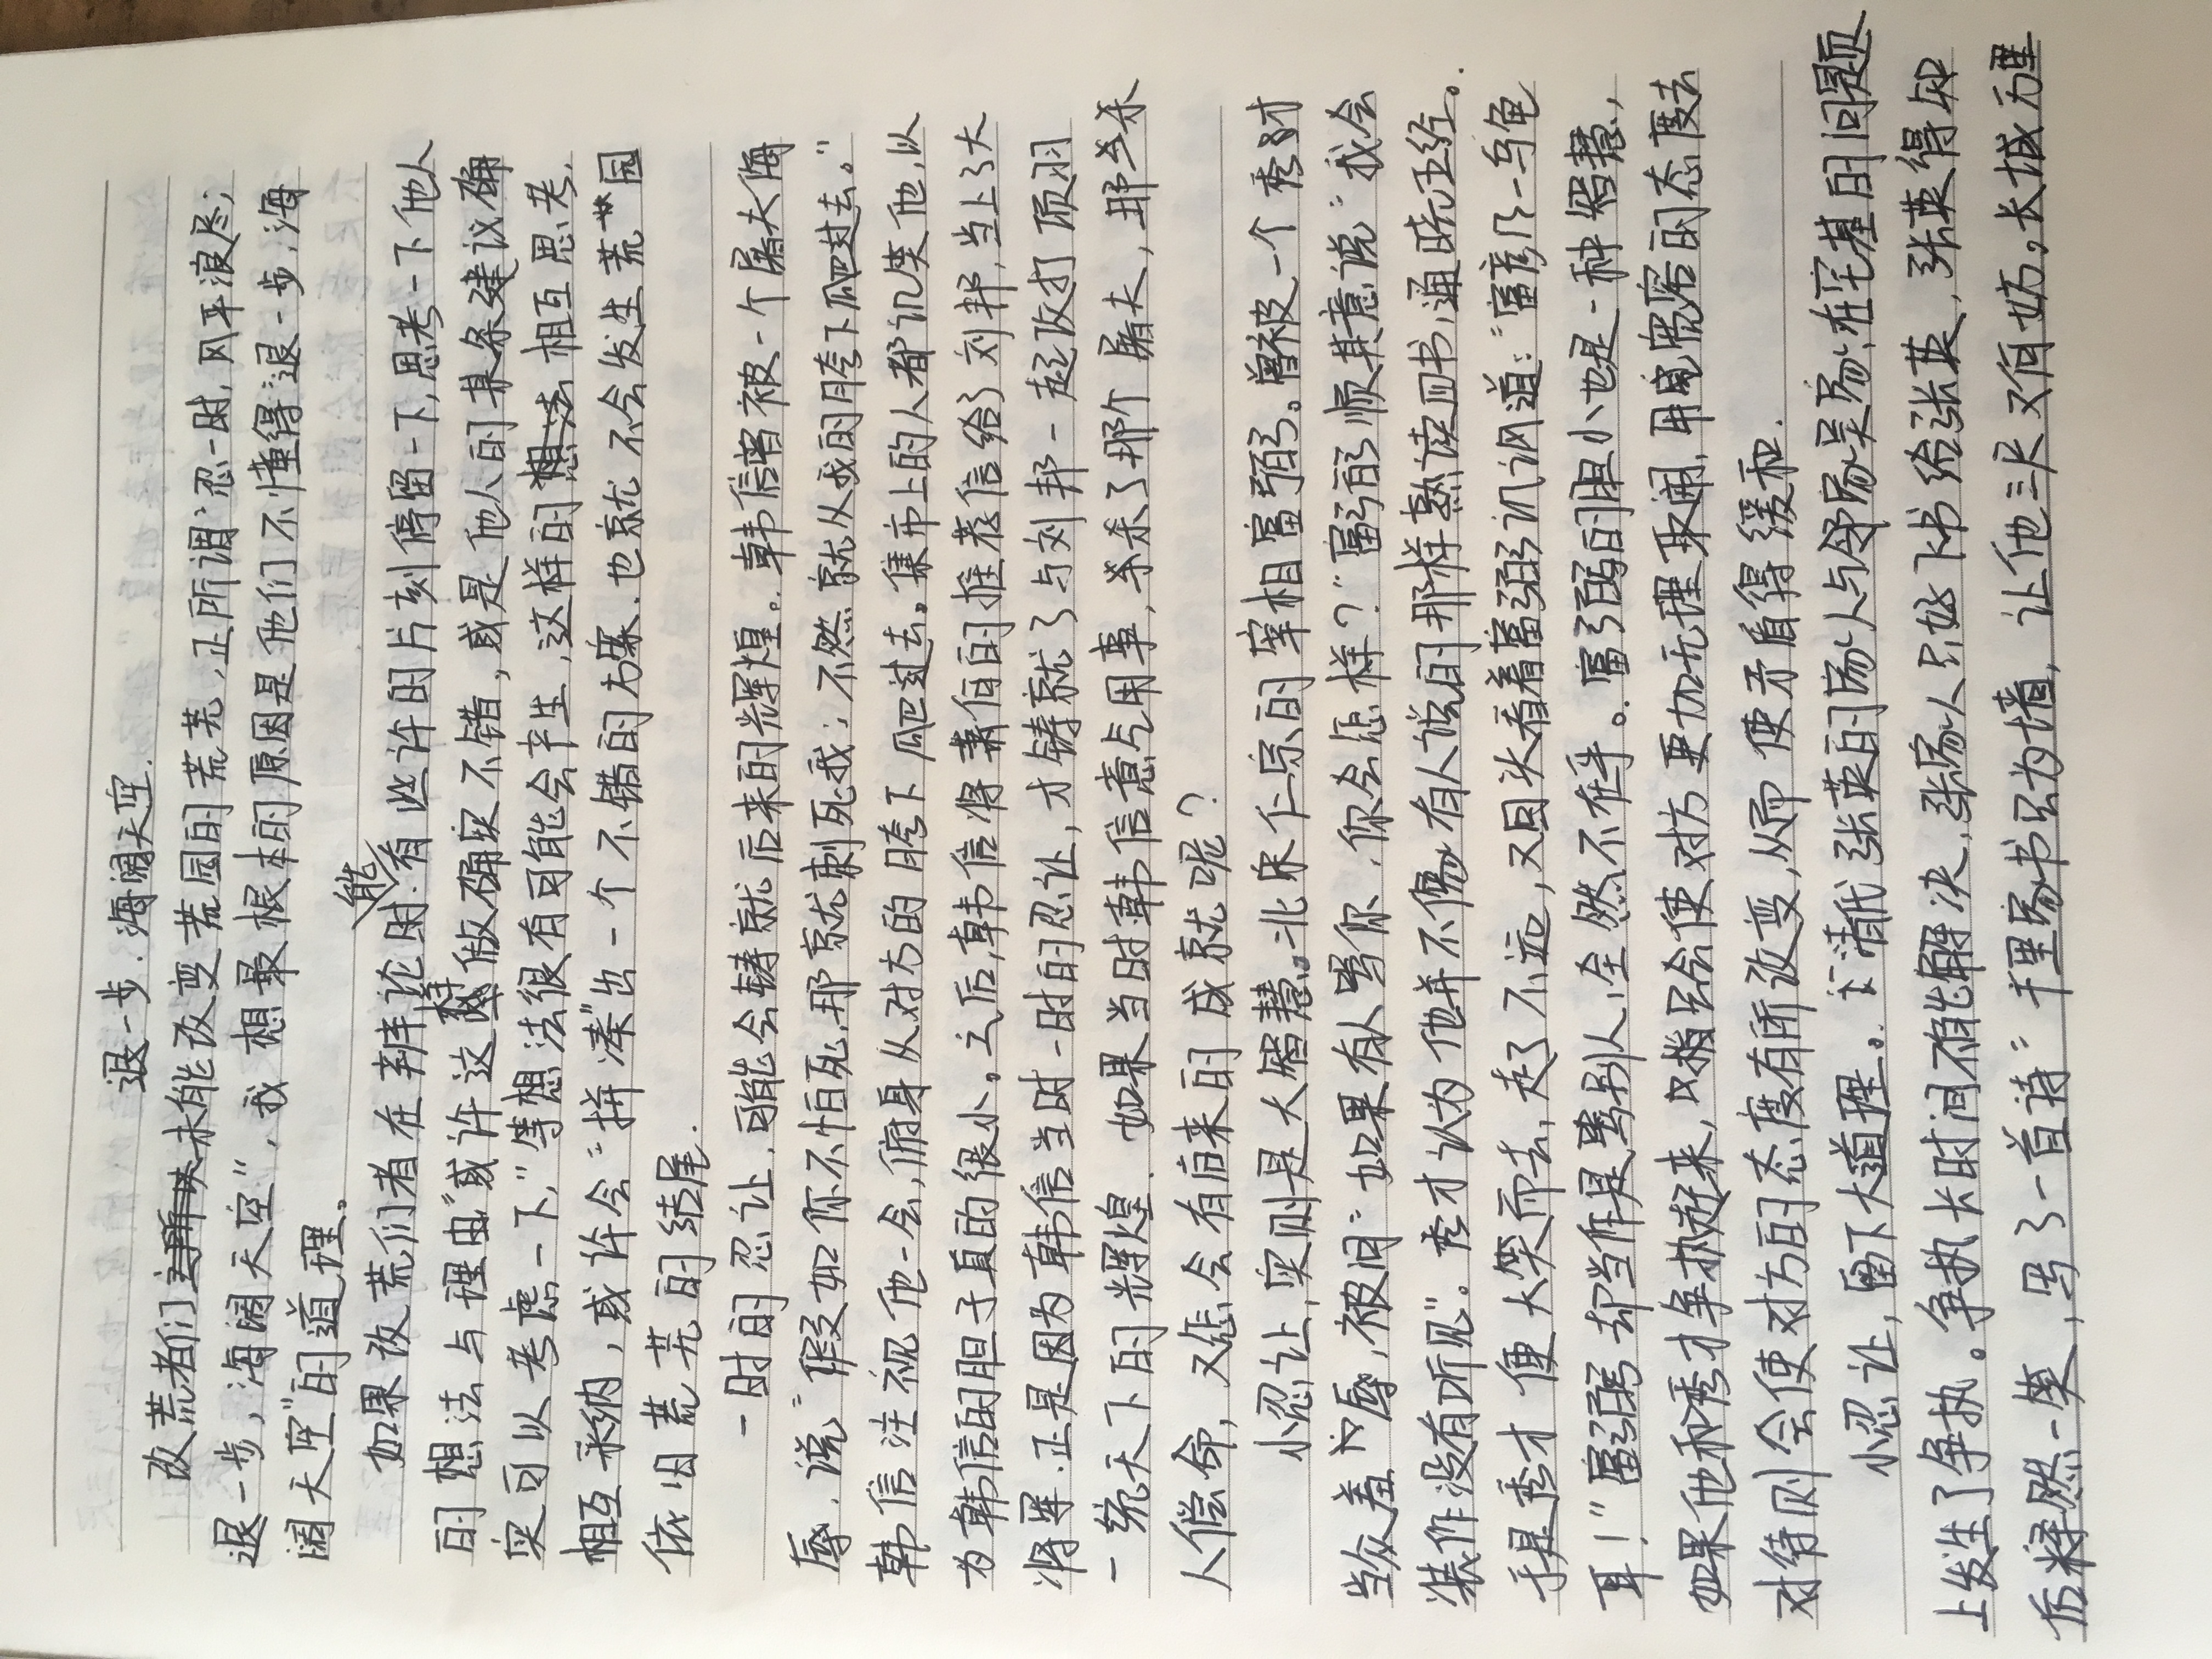 退一步.海阔天空.
改荒者们未能改变荒园的荒芜,正所谓"忍一时,风平浪尽;
退一步,海阔天空",我想最根本的原因是他们不懂得"退一步,海
阔天空"的道理。
如果改荒们者在辩论时.能有些许的片刻停留一下,思考一下他人
的想法与理由"或许这样做确实不错,或是他人的某条建议确
实可以考虑一下,"等想法很有可能会产生,这样的想法相互思考,
相互采纳,或许会"拼凑"出一个不错的方案.也就不会发生荒园
依旧荒芜的结尾.
一时的忍让,可能会铸就后来的辉煌。韩信曾被一个屠夫侮
辱.说"假若如你不怕死,那就刺死我;不然就从我的胯下爬过去。"
韩信注视他一会,俯身从对方的胯下爬过去。集市上的人都讥笑他,以
为韩信的胆子真的很小。之后,韩信将萧何的推荐信给了刘邦,当上了大
将军.正是因为韩信当时一时的忍让,才铸就了与刘邦一起攻打项羽
一统天下的辉煌.如果当时韩信意气用事,杀杀了那个屠夫,那么杀
人偿命,又怎会有后来的成就呢?
小忍让,实则是大智慧。北宋仁宗的宰相富弼。曾被一个秀才
当众羞辱,被问"如果有人骂你,你会怎样?"富弼顺其意说"我会
装作没有听见"。秀才认为他并不像有人说的那样熟读四书,通晓五经。
于是秀才便大笑而去,走了不远,又回头看着富弼讥讽道:"富彦乃一乌龟
耳!"富弼却当作是骂别人,全然不在乎。富弼的胆小也是一种智慧,
如果他和秀才争执起来,只会使对方更加无理取闹,用宽容的态度去
对待则会使对方的态度有所改变,从而使矛盾得缓和.
小忍让,留下大道理。清代张英的家人与邻家吴家,在宅基的问题
上发生了争执。争执长时间不能解决,张家人只好下书给张英,张英得知
后释然一笑,写了一首诗"千里家书只为墙,让他三尺又何妨。长城万里